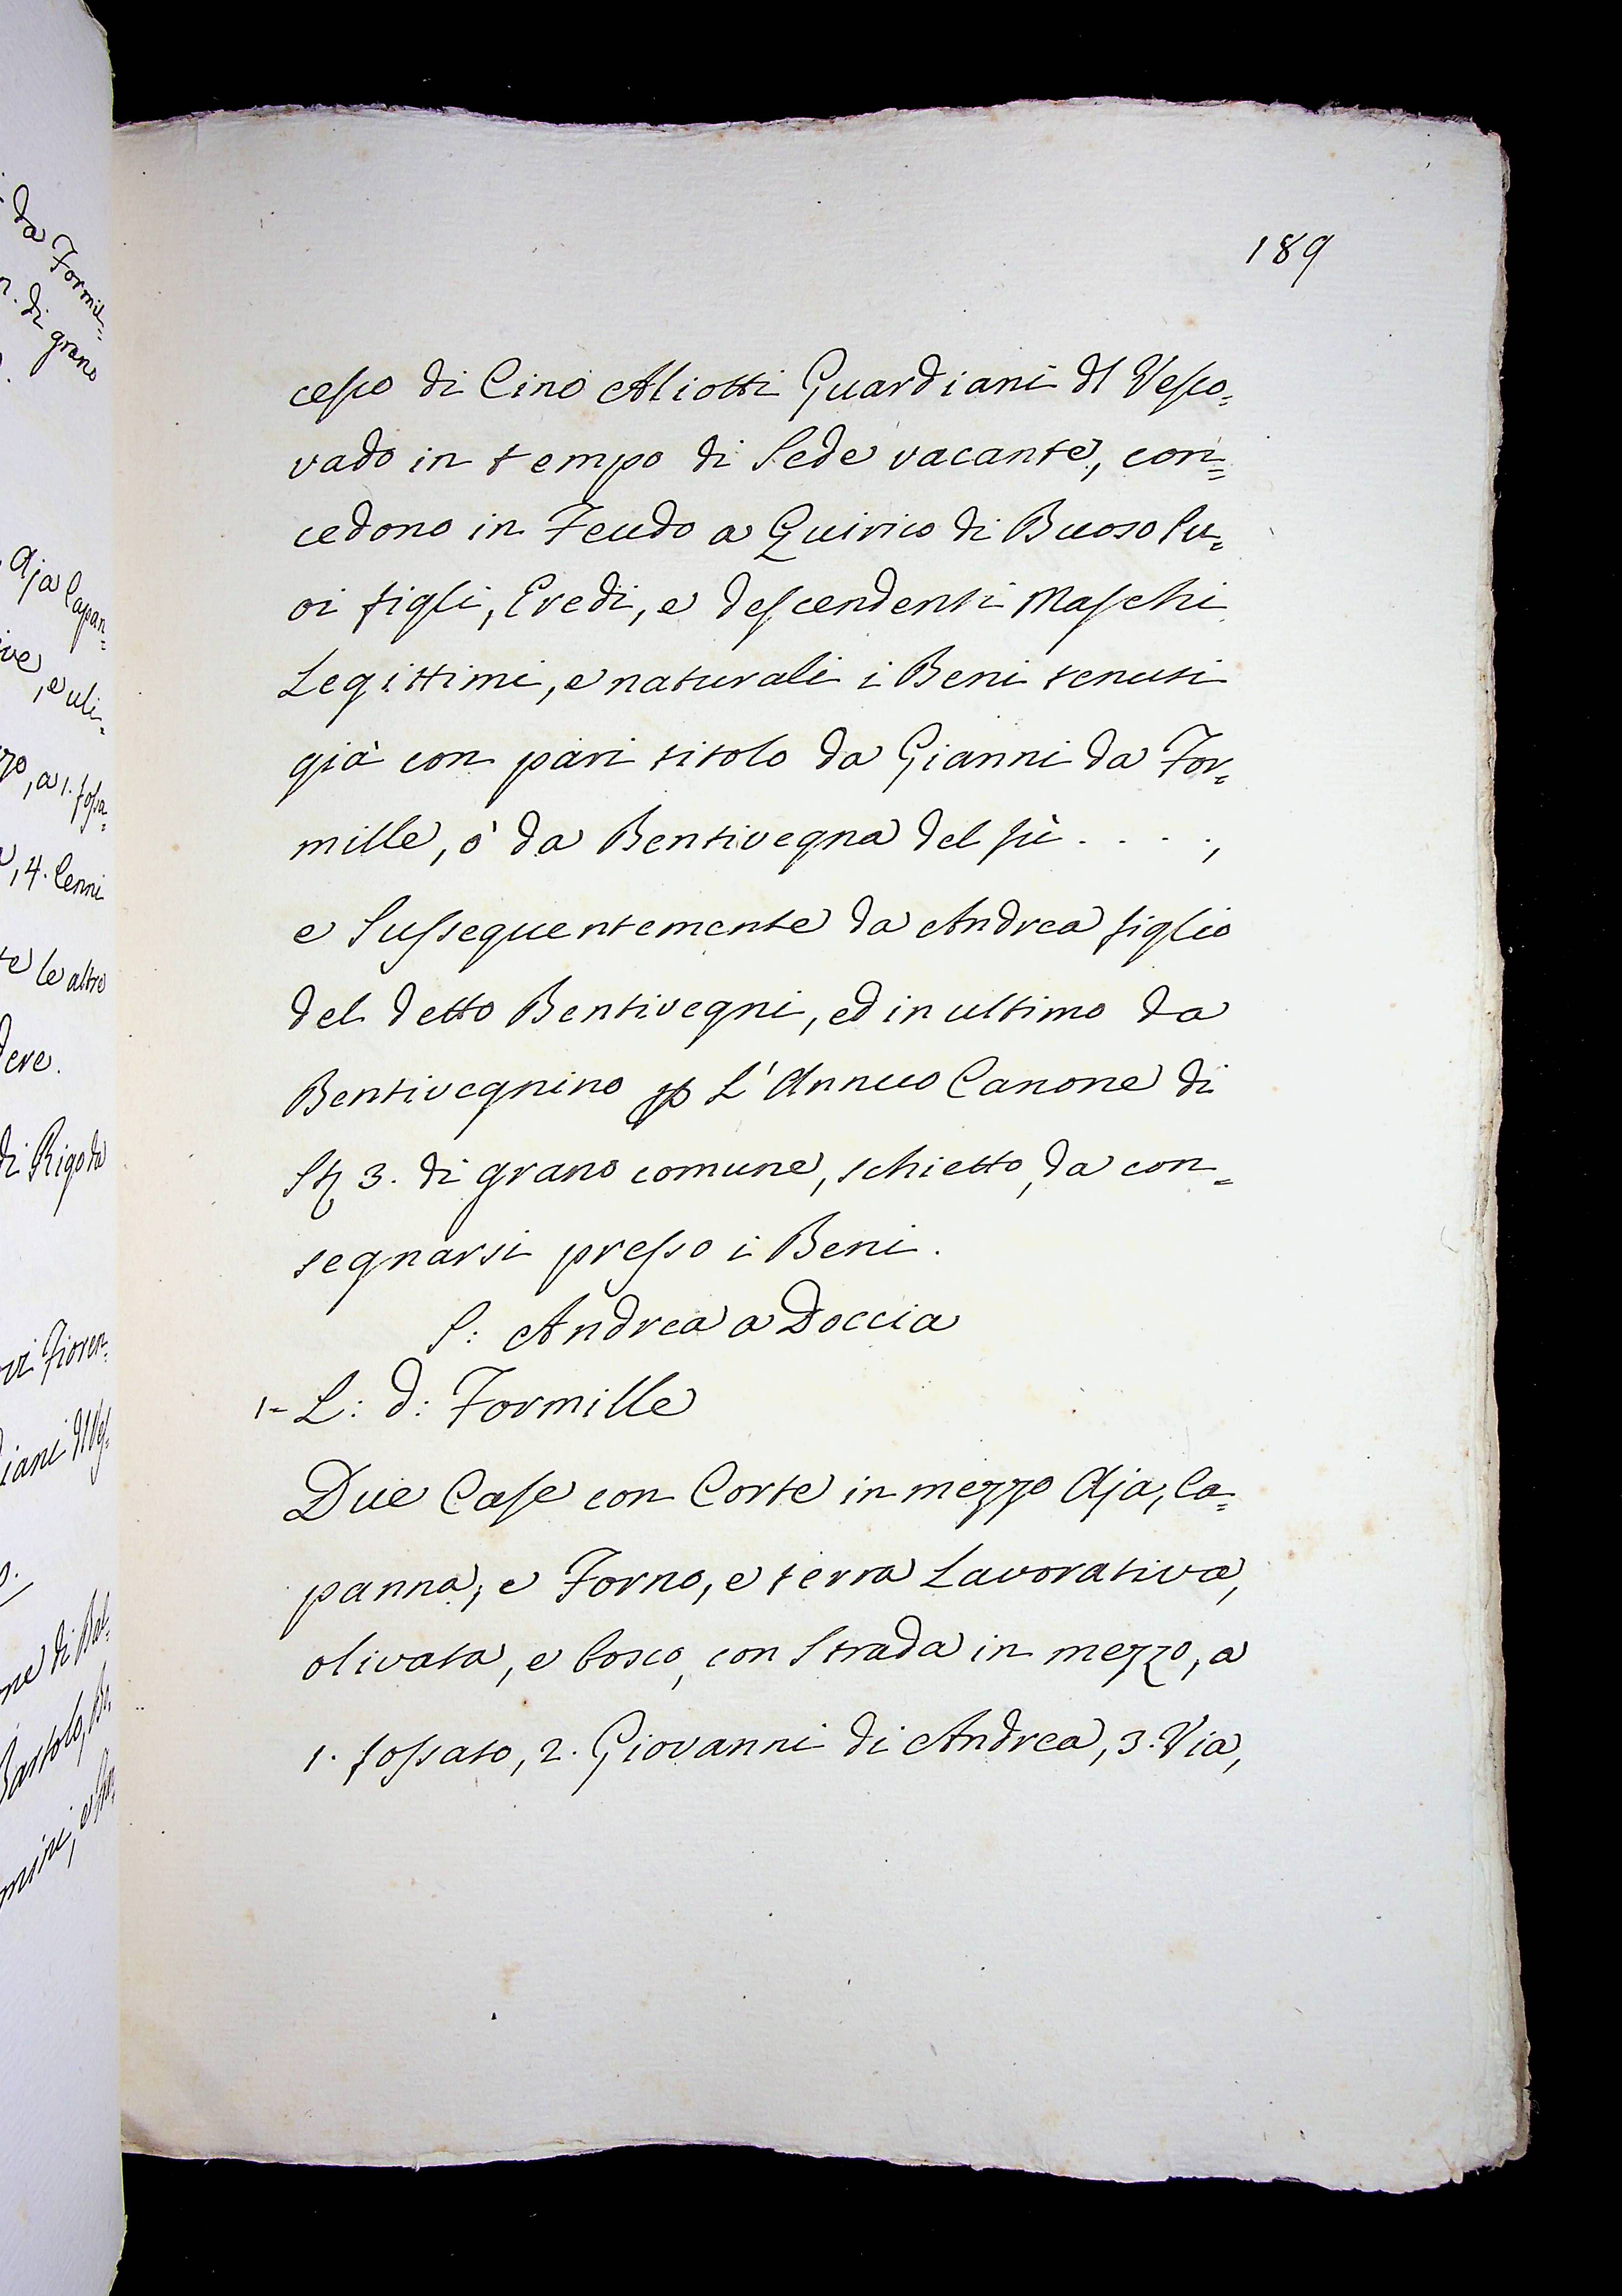 189
cesco di Cino Aliotti Guardiani dl Vesco=
vado in tempo di Sede vacante, con=
cedono in Feudo a Quirico di Buoso Su=
oi figli, Eredi, e descendenti Maschi
Legittimi, e naturali i Beni tenuti
già con pari titolo da Gianni da For=
mille, ò da Bentivegna del fù . . . . ,
e Sussequentemente da Andrea figlio
del detto Bentivegni, ed in ultimo da
Bentivegnino p L'Annuo Canone di
St 3. di grano comune, schietto, da con=
segnarsi presso i Beni.
S: Andrea a Doccia
1- L: d: Formille
Due Case con Corte in mezzo Aja, Ca=
panna, e Forno, e terra Lavorativa,
olivata, e bosco, con Strada in mezzo, a
1. fossato, 2. Giovanni di Andrea, 3. Via,
da Formil=
di grano
Aja Capan=
ive, e uli=
zzo, a 1. fossa=
, 4. Cenni
te le altre
dere.
di Rigo da
vi Fioren=
diani dl Ves=
ne di Bal=
Bartolo, Be=